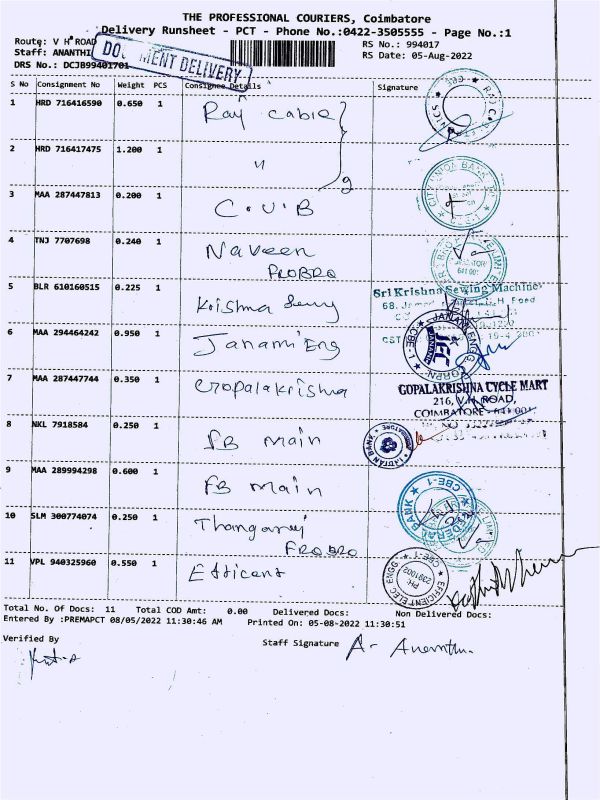 THE PROFESSIONAL COURIERS, Coimbatore
Delivery Runsheet - PCT - Phone No.:0422-3505555 - Page No.:1
Route: V H ROAD
RS No.: 994017
Staff: ANANTHI
RS Date: 05-Aug-2022
DRS No.: DCJB99401701
DOCUMENT DELIVERY
S No Consignment No Weight PCS Consignee Details Signature
1 HRD 716416590 0.650 1 Raj Cable
2 HRD 716417475 1.200 1 "
3 MAA 287447813 0.200 1 C.U.B
CITY UNION BANK
4 TNJ 7707698 0.240 1 Naveen
PROBRO
641 001
5 BLR 610160515 0.225 1 Krishna
Sri Krishna Sewing Machine
6 MAA 294464242 0.950 1 Janami Eng
JEC
CBE-1
7 MAA 287447744 0.350 1 Gopalakrishna
GOPALAKRISHNA CYCLE MART
216, V.H. ROAD,
COIMBATORE - 641 001
8 NKL 7918584 0.250 1 IB main
INDIAN BANK
9 MAA 289994298 0.600 1 FB main
FEDERAL BANK
CBE-1
10 SLM 300774074 0.250 1 Thangaraj
PROBRO
11 VPL 940325960 0.550 1 Efficent
EFFICIENT ELEC ENGG
CBE-1
PH: 2391002
Total No. Of Docs: 11 Total COD Amt: 0.00 Delivered Docs: Non Delivered Docs:
Entered By :PREMAPCT 08/05/2022 11:30:46 AM Printed On: 05-08-2022 11:30:51
Verified By
Staff Signature A. Ananthi